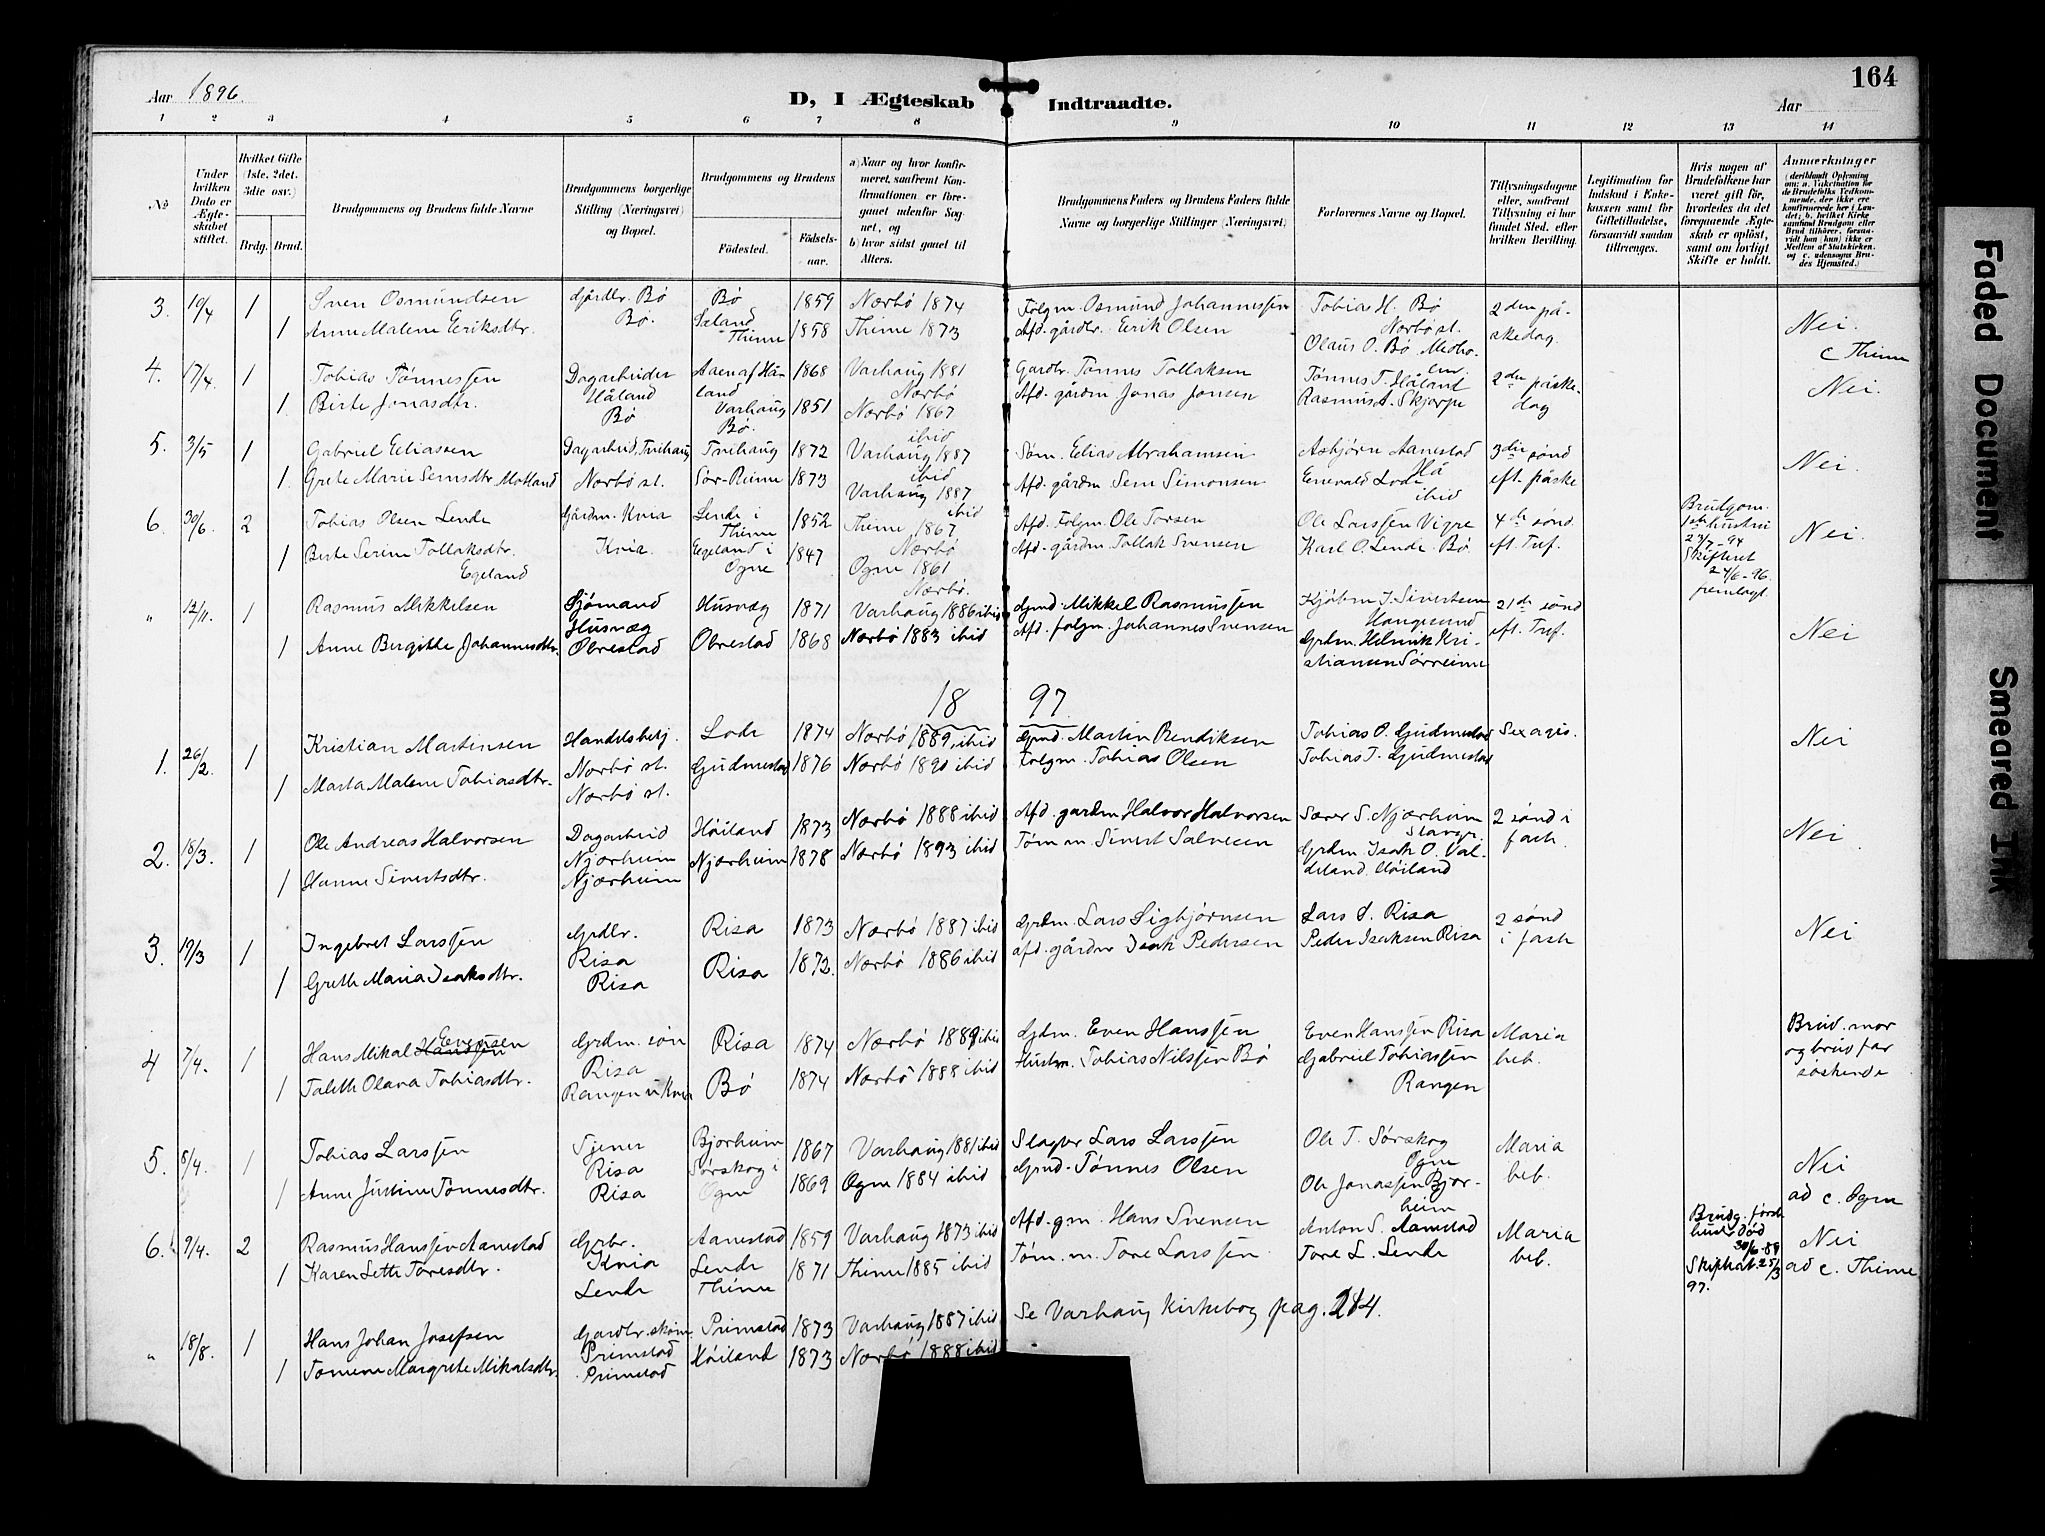 164
Aar 1896.
D, I Ægteskab Indtraadte.
Aar
1 2 3 4 5 6 7 8 9 10 11 12 13 14
No
Under hvilken Dato er Ægteskabet stiftet.
Hvilket Gifte (1ste, 2det, 3die osv.)
Brdg. Brud.
Brudgommens og Brudens fulde Navne
Brudgommens borgerlige Stilling (Næringsvei) og Bopæl.
Brudgommens og Brudens
Fødested.
Fødselsaar.
a) Naar og hvor konfirmeret, saafremt Konfirmationen er foregaaet udenfor Sognet, og
b) hvor sidst gaaet til Alters.
Brudgommens Faders og Brudens Faders fulde Navne og borgerlige Stillinger (Næringsvei)
Forlovernes Navne og Bopæl.
Tillysningsdagene eller, saafremt Tillysning ei har fundet Sted, efter hvilken Bevilling.
Legitimation for Indskud i Enkekassen samt for Giftetilladelse, forsaavidt saadan tiltrænges.
Hvis nogen af Brudefolkene har været gift før, hvorledes da det foregaaende Ægteskab er opløst, samt om lovligt Skifte er holdt.
Anmærkninger
3. 19/4 1 Sven Osmundsen Gårdbr. Bø Bø 1859 Nærbø 1874 Følgm. Osmund Johannessen Tobias H. Bø 2den på-
1 Anne Malene Eriksdtr. Bø. Thime 1858 Thime 1873 Afd. gårdbr. Erik Olsen Nærbø st. skedag. Nei.
Olaus O. Bø c Thime
4. 17/4 1 Tobias Tønnessen Dagarbeider 1868 Varhaug 1881 Gardbr. Tønnes Tollaksen Tønnes T. Håland 2den påske- Nei.
Håland land Nærbø
1 Birte Jonasdtr. Bø Varhaug 1851 Nærbø 1867 Afd. gårdm Jonas Jonsen Rasmus A. Skjærpe dag
Bø. ibid
5. 3/5 1 Gabriel Eliassen Dagarbeid. Tvihaug Tvihaug 1872 Varhaug 1887 Søm. Elias Abrahamsen Asbjørn Aanestad 3die sønd Nei.
ibid Hå
1 Grete Marie Semsdtr. Motland Nærbø st. Sør-Reime 1873 Varhaug 1887 Afd. gårdm Sem Simonsen Enevald Lode eft. påske
ibid ibid
6. 30/6 2 Tobias Olsen Lende Gårdm. Kvia Lende i Thime 1852 Thime 1867 Afd. Følgm. Ole Torsen Ole Larssen Vigre 4de sønd. Brudgom. 1ste hustru Nei.
Nærbø
1 Berte Serine Tollaksdtr. Egeland Kvia. Egeland i Ogne 1847 Ogne 1861 Afd. gårdm Tollak Svensen Karl O. Lende Bø. eft. Tref. 27/7-94 Skifteret 24/6-96. fremlagt
Nærbø.
" 12/11. 1 Rasmus Mikkelsen Sjømand Husvæg Husvæg 1871 Varhaug 1886 ibid Grmd. Mikkel Rasmussen J. Sivertsen 21de sønd
Haugesund
1 Anne Bergitte Johannesdtr. Obrestad Obrestad 1868 Nærbø 1883 ibid Afd. følgm. Johannes Svensen Grdm. Henrik Kri- eft. Tref. Nei
stiansen Sørreime
18 97.
1. 26/2. 1 Kristian Martinsen Handelsbetj. Nærbø st. Lode 1874 Nærbø 1889, ibid Grmd. Martin Bendiksen Tobias O. Gudmestad Sexages. Nei
1 Marta Malene Tobiasdtr. Nærbø st. Gudmestad 1876 Nærbø 1890 ibid Følgm. Tobias Olsen Tobias T. Gudmestad
2. 18/3. 1 Ole Andreas Halvorsen Dagarbeid Njærheim Høiland 1873 Nærbø 1888 ibid Afd. gardm Halvor Halvorsen S. Njærheim 2 sønd i Nei
Stavgr.
1 Hanne Sivertsdtr. Njærheim Njærheim 1878 Nærbø 1893 ibid Tømm. Sivert Salvesen Grdm. Isak O. Val- fast.
deland Høiland
3. 19/3 1 Ingebret Larssen Grdbr. Risa Risa 1873 Nærbø 1887 ibid Grdm. Lars Sigbjørnsen Lars S. Risa 2 sønd Nei
1 Grethe Maria Isaksdtr. Risa Risa 1872. Nærbø 1886 ibid afd. gårdbr Isak Pedersen Peder Isaksen Risa i fast
4 7/4. 1 Hans Mikal Hanssen Evensen Grdm. søn Risa Risa 1874 Nærbø 1889 ibid Grdm. Even Hanssen Even Hanssen Risa Maria Brud. mor
1 Taleth Olava Tobiasdtr. Rangen u Kvia Bø 1874 Nærbø 1888 ibid Husm. Tobias Nilssen Bø Gabriel Tobiassen beb. og brud far
Rangen søskende
5. 8/4. 1 Tobias Larssen Tjener Risa Bjorheim 1867 Varhaug 1881 ibid Lars Larssen Ole T. Sørskog Maria Nei
Ogne
1 Anne Justine Tønnesdtr. Risa Sørskog i Ogne 1869 Ogne 1884 ibid Grmd. Tønnes Olsen Ole Jonassen Bjor- beb. ad c. Ogne
heim
6. 9/4. 2 Rasmus Hanssen Aanestad Grbr. Kvia Aanestad 1859 Varhaug 1873 ibid Afd. gm. Hans Svensen Anton S. Aanestad Maria Brudg. første hustr død 30/6-88 Nei
1 Karen Sethe Toresdtr. Lende Lende Thime 1871 Thime 1885 ibid Tøm. m. Tore Larssen Tore L. Lende beb. 25/3 97. ad c. Thime
" 18/8. 1 Hans Johan Josefsen Primstad Primstad 1873 Varhaug 1887 ibid Se Varhaug Kirkebog pag. 214.
1 Margrete Mikalsdtr. Primstad Høiland 1873 Nærbø 1888 ibid
Faded Document
Smeared Ink